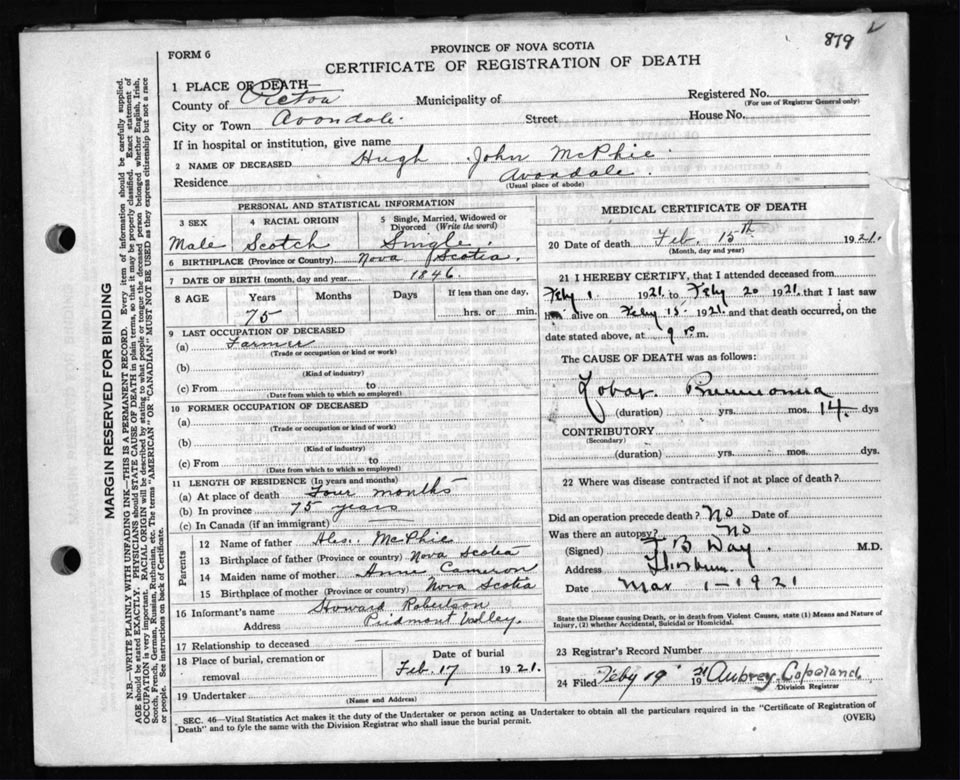 879
FORM 6
PROVINCE OF NOVA SCOTIA
CERTIFICATE OF REGISTRATION OF DEATH
1 PLACE OF DEATH—
County of Pictou Municipality of
Registered No.
(For use of Registrar General only)
City or Town Avondale. Street House No.
If in hospital or institution, give name
2 NAME OF DECEASED Hugh John McPhie.
Residence Avondale.
(Usual place of abode)
PERSONAL AND STATISTICAL INFORMATION
3 SEX 4 RACIAL ORIGIN 5 Single, Married, Widowed or Divorced (Write the word)
Male Scotch Single.
6 BIRTHPLACE (Province or Country) Nova Scotia.
7 DATE OF BIRTH (month, day and year 1846.
8 AGE Years Months Days If less than one day,
75 hrs. or min.
9 LAST OCCUPATION OF DECEASED
(a) Farmer
(Trade or occupation or kind or work)
(b)
(Kind of industry)
(c) From to
(Date from which to which so employed)
10 FORMER OCCUPATION OF DECEASED
(a)
(Trade or occupation or kind of work)
(b)
(Kind of industry)
(c) From to
(Date from which to which so employed)
11 LENGTH OF RESIDENCE (In years and months)
(a) At place of death Four months
(b) In province 75 years
(c) In Canada (if an immigrant)
Parents
12 Name of father Alex. McPhie
13 Birthplace of father (Province or country) Nova Scotia
14 Maiden name of mother Anne Cameron
15 Birthplace of mother (Province or country) Nova Scotia
16 Informant's name Howard Robertson
Address Piedmont Valley.
17 Relationship to deceased
18 Place of burial, cremation or removal Date of burial
Feb. 17 1921.
19 Undertaker
(Name and Address)
MEDICAL CERTIFICATE OF DEATH
20 Date of death Feb. 15th 1921.
(Month, day and year)
21 I HEREBY CERTIFY, that I attended deceased from
Feby 1 1921 to Feby 20 1921, that I last saw
him alive on Feby 15 1921 and that death occurred, on the
date stated above, at 9 P.m.
The CAUSE OF DEATH was as follows:
Lobar Pneumonia
(duration) yrs. mos. 14. dys
CONTRIBUTORY
(Secondary)
(duration) yrs. mos. dys.
22 Where was disease contracted if not at place of death?
Did an operation precede death? No Date of
Was there an autopsy? No
(Signed) B Day. M.D.
Address Thorburn
Date Mar 1-1921
State the Disease causing Death, or in death from Violent Causes, state (1) Means and Nature of
Injury, (2) whether Accidental, Suicidal or Homicidal.
23 Registrar's Record Number
24 Filed Feby 19 1921 Aubrey Copeland
Division Registrar
SEC. 46—Vital Statistics Act makes it the duty of the Undertaker or person acting as Undertaker to obtain all the particulars required in the "Certificate of Registration of
Death" and to fyle the same with the Division Registrar who shall issue the burial permit.
(OVER)
MARGIN RESERVED FOR BINDING
N.B.—WRITE PLAINLY WITH UNFADING INK—THIS IS A PERMANENT RECORD. Every item of information should be carefully supplied.
AGE should be stated EXACTLY. PHYSICIANS should STATE CAUSE OF DEATH in plain terms, so that it may be properly classified. Exact statement of
OCCUPATION is very important. RACIAL ORIGIN will be described by stating to what people or tongue the deceased person belonged whether English, Irish,
Scotch, French, German, Russian, Ruthenian, etc. The terms "AMERICAN" OR "CANADIAN" MUST NOT BE USED as they express citizenship but not a race
or people. See instructions on back of Certificate.